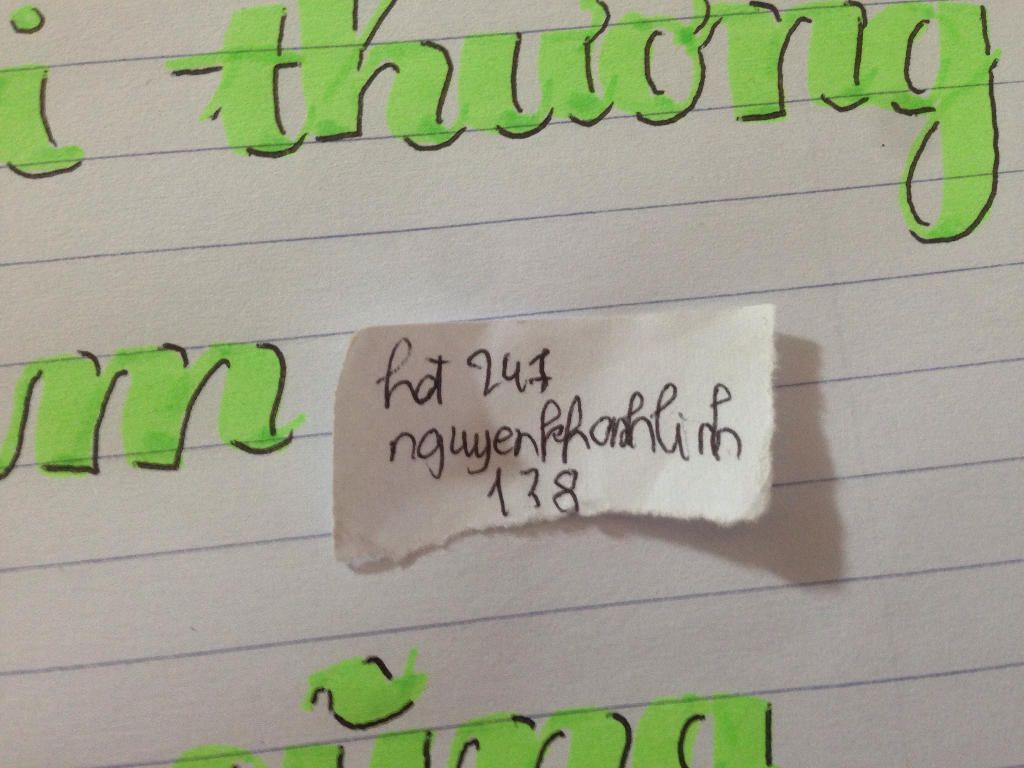 i thương
m
hot 247
nguyenkhanhlinh
138
cũng